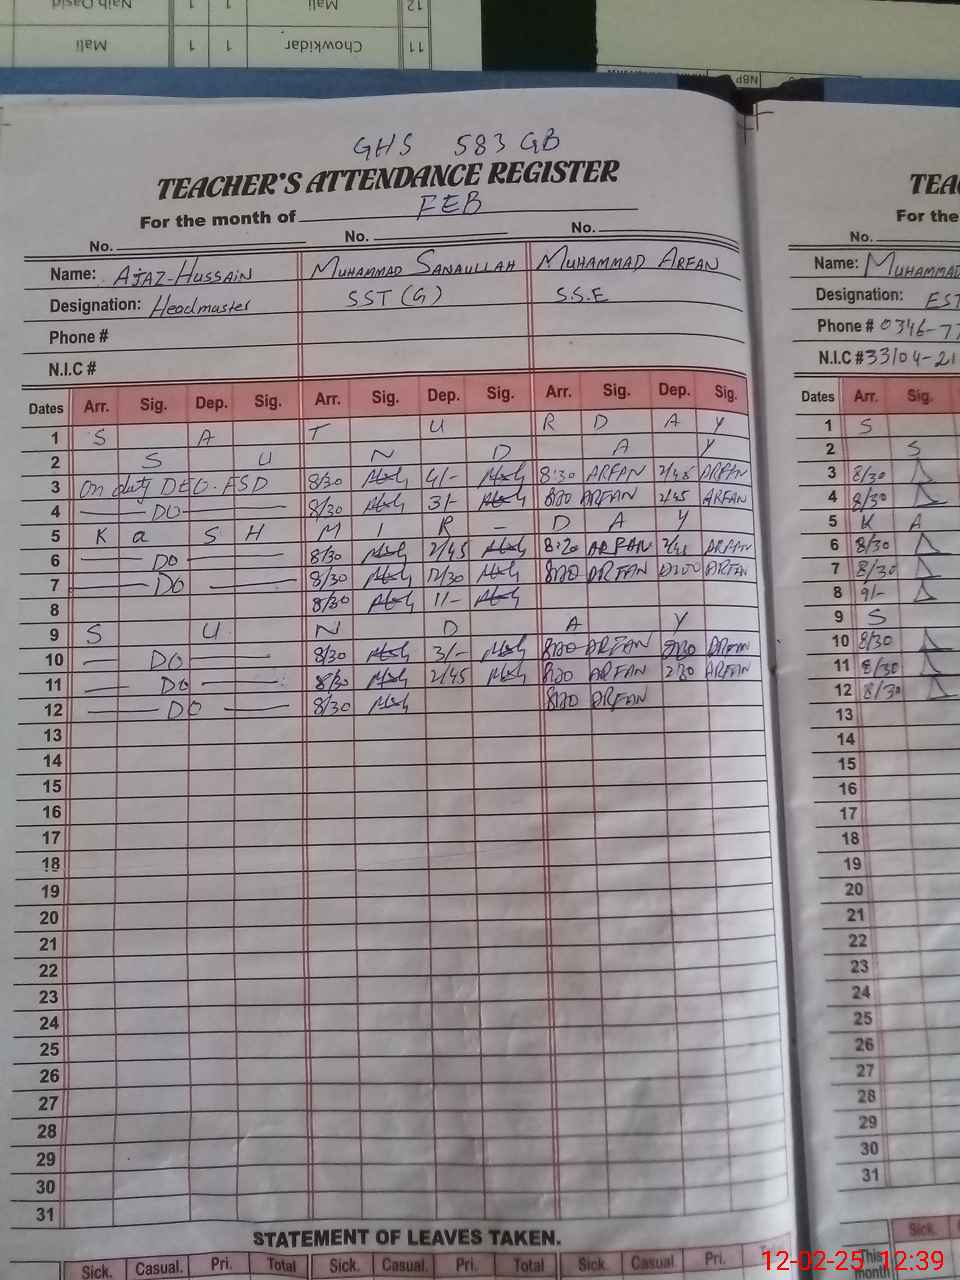 12 Mali 1 1 Naib Qasid
11 Chowkidar 1 1 Mali
NBP
GHS 583 GB
TEACHER'S ATTENDANCE REGISTER
For the month of FEB
No. No. No.
Name: AJAZ-HUSSAIN MUHAMMAD SANAULLAH MUHAMMAD ARFAN
Designation: Headmaster SST (G) S.S.E
Phone #
N.I.C #
Dates Arr. Sig. Dep. Sig. Arr. Sig. Dep. Sig. Arr. Sig. Dep. Sig.
1 S A T U R D A Y
2 S U N D A Y
3 On duty DEO.FSD 8/30 4/- 8:30 ARFAN 2/45 ARFAN
4 DO 8/30 3/- ARFAN 2/45 ARFAN
5 K a S H M I R - D A Y
6 DO 8/30 2/45 8:20 ARFAN 2/45 ARFAN
7 DO 8/30 12/30 ARFAN ARFAN
8 8/30 11/-
9 S U N D A Y
10 DO 8/30 3/- ARFAN ARFAN
11 DO 8/30 2/45 ARFAN ARFAN
12 DO 8/30 ARFAN
13
14
15
16
17
18
19
20
21
22
23
24
25
26
27
28
29
30
31
STATEMENT OF LEAVES TAKEN.
Sick. Casual. Pri. Total Sick. Casual. Pri. Total Sick. Casual. Pri.
TEA
For the
No.
Name: MUHAMMAD
Designation: EST
Phone # 0346-77
N.I.C # 33104-21
Dates Arr. Sig.
1 S
2 S
3 8/30
4 8/30
5 K A
6 8/30
7 8/30
8 9/-
9 S
10 8/30
11 8/30
12 8/30
13
14
15
16
17
18
19
20
21
22
23
24
25
26
27
28
29
30
31
Sick.
This month
12-02-25 12:39